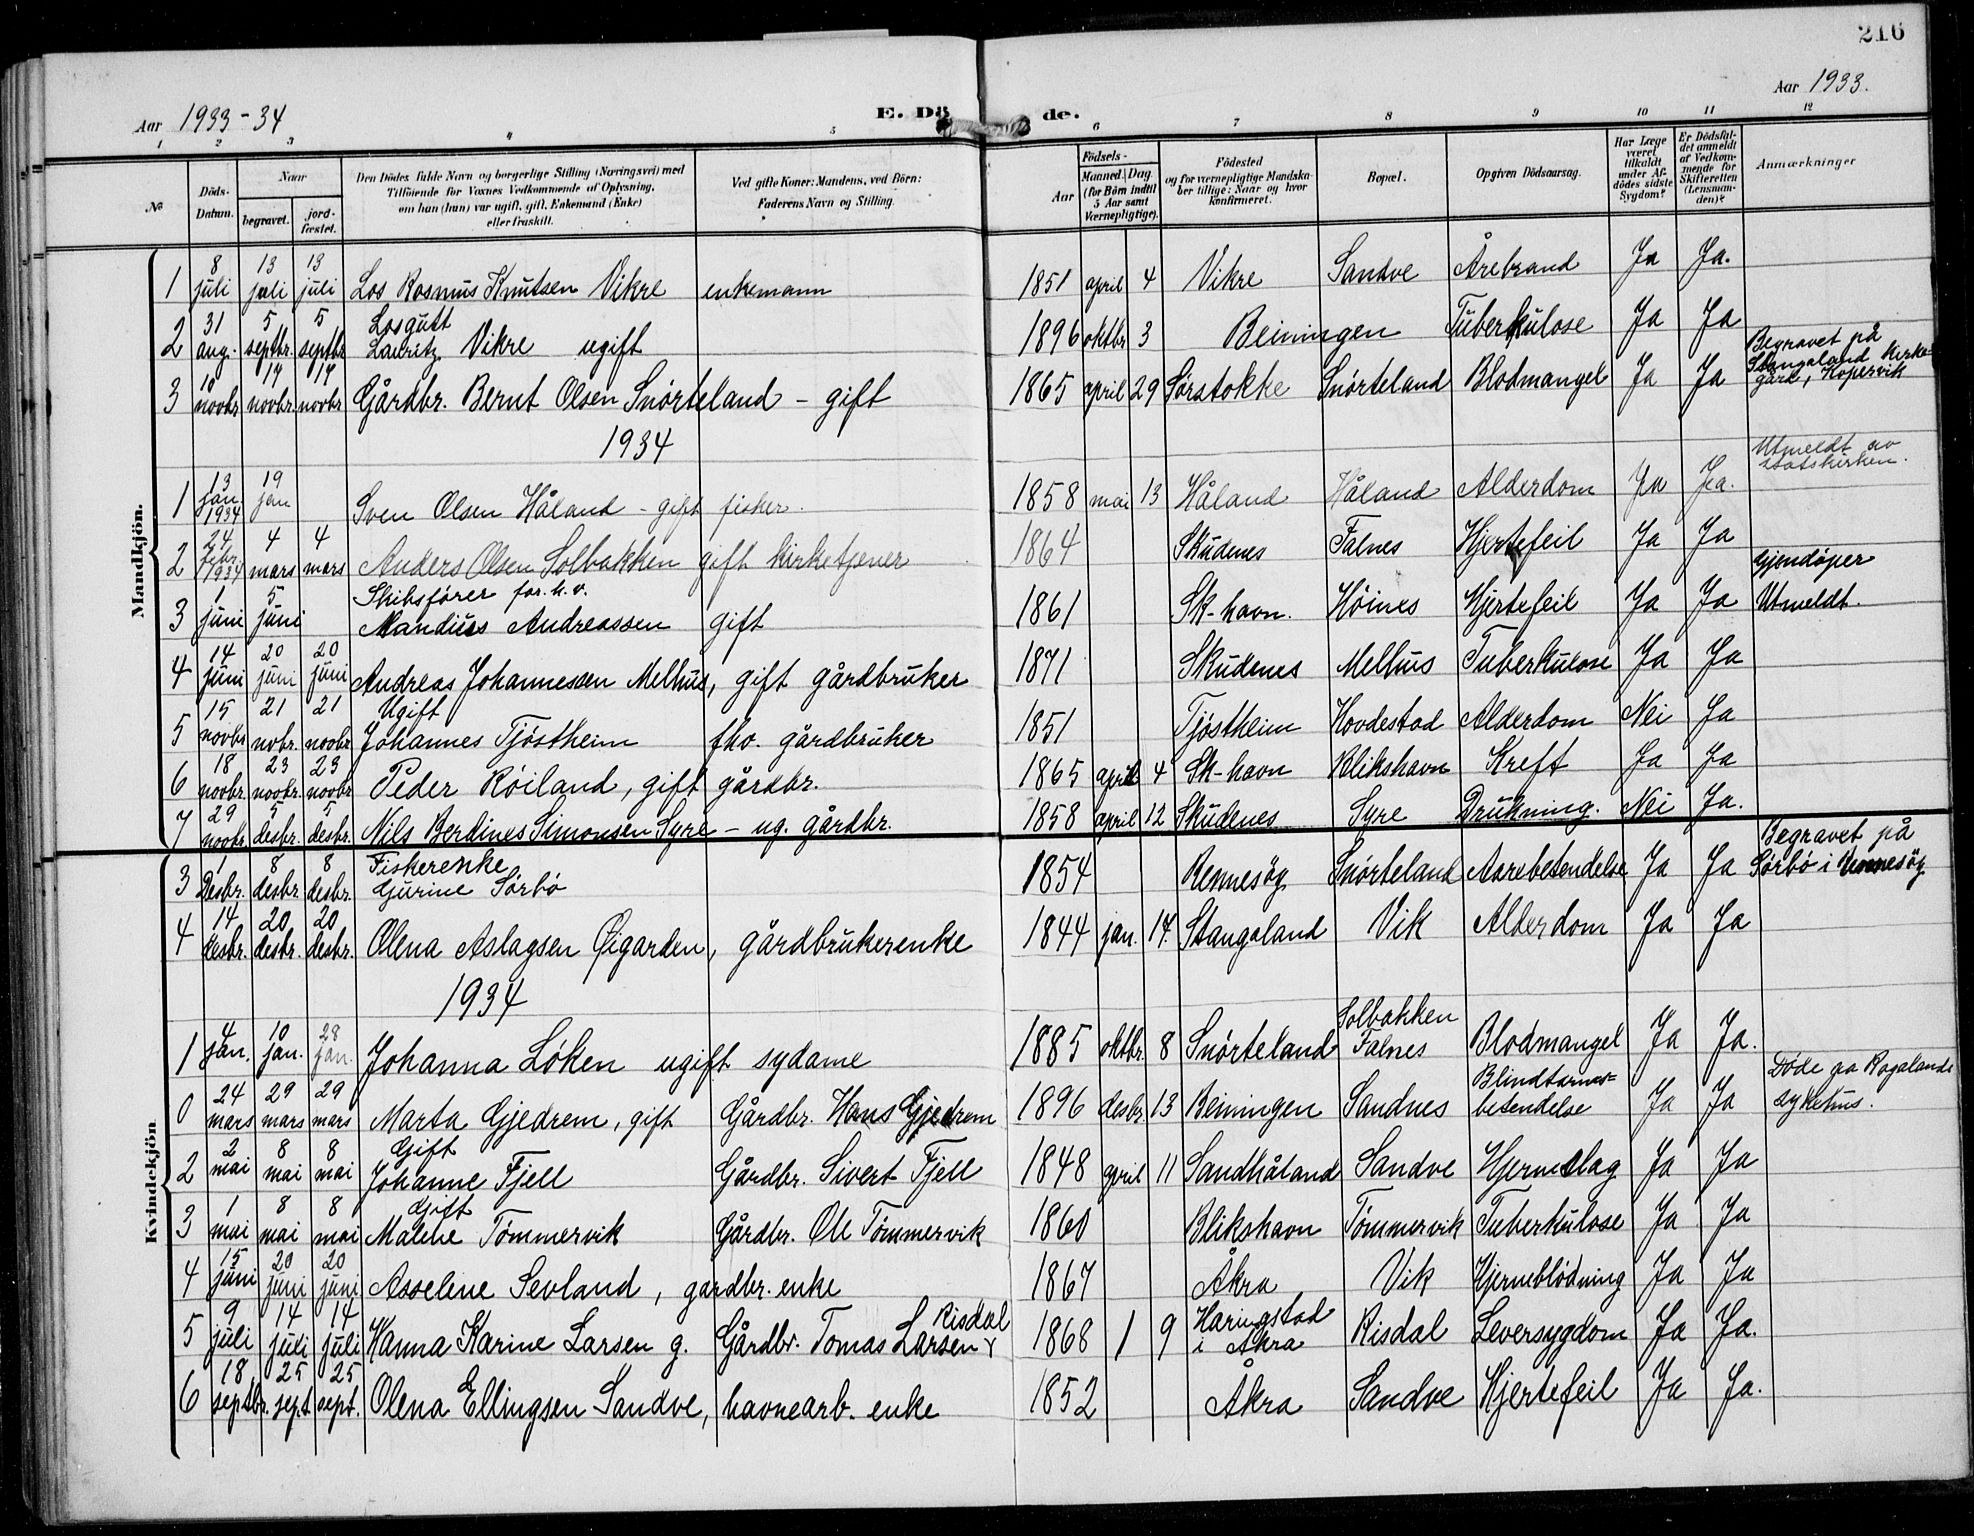 216
Aar 1933-34
E. Dö de.
Aar 1933.
1 2 3 4 5 6 7 8 9 10 11 12
№ Döds-Datum. Naar begravet. jordfæstet. Den Dödes fulde Navn og borgerlige Stilling (Næringsvei) med Tilföiende for Voxnes Vedkommende af Oplysning, om han (hun) var ugift, gift, Enkemand (Enke) eller fraskilt. Ved gifte Koner: Mandens, ved Börn: Faderens Navn og Stilling. Aar Födsels- Maaned. Dag (for Börn indtil 5 Aar samt Værnepligtige). Födested og for værnepligtige Mandskaber tillige: Naar og hvor Konfirmeret. Bopæl. Opgiven Dödsaarsag. Har Læge været tilkaldt under Afdödes sidste Sygdom? Er Dödsfaldet anmeldt af Vedkommende for Skifteretten (Lensmanden)? Anmærkninger
Mandkjön.
1 8 juli 13 juli 13 juli Los Rasmus Knutsen Vikre enkemann 1851 april 4 Vikre Sandve Årebrand Ja Ja.
2 31 aug. 5 septbr. 5 septbr Losgutt Lauritz Vikre ugift 1896 oktbr 3 Beiningen Tuberkulose Ja Ja
3 10 novbr 17 novbr 17 novbr Gårdbr. Bernt Olsen Snörteland - gift 1865 april 29 Sörstokke Snörteland Blodmangel Ja Ja Begravet på Stangaland Kirkegård, Kopervik
1934
1 13 jan. 1934 19 jan Sven Olsen Håland - gift fisker. 1858 mai 13 Håland Håland Alderdom Ja Ja. Utmeldt av statskirken.
2 24 febr. 1934 4 mars 4 mars Anders Olsen Solbakken gift kirketjener 1864 Skudenes Falnes Hjertefeil Ja Ja
3 1 juni 5 juni Skibsförer for. h. v. Mandius Andreassen gift 1861 Sk-havn. Höines Hjertefeil Ja Ja Gjendöper Utmeldt.
4 14 juni 20 juni 20 juni Andreas Johannessen Melhus, gift gårdbruker 1871 Skudenes Melhus Tuberkulose Ja Ja
5 15 novbr 21 nobr. 21 novbr Ugift Johannes Tjöstheim fho. gårdbruker 1851 Tjöstheim Hovdestad Alderdom Nei Ja
6 18 novbr. 23 novbr. 23 novbr Peder Röiland, gift gårdbr. 1865 april 4 Sk-havn Blikshavn Kreft Ja Ja
7 29 novbr 5 desbr. 5 desbr. Nils Berdines Simonsen Syre - ug. gårdbr. 1858 april 12 Skudenes Syre Drukning. Nei Ja.
Kvindekjön
3 1 Desbr. 8 desbr 8 desbr. Fiskerenke Gjurine Sörbö 1854 Rennesöy Snörteland Aarebetendelse Ja Ja Begravet på Sörbö i Rennesöy
4 14 desbr. 20 desbr. 20 desbr. Olena Aslagsen Öigarden, gårdbrukerenke 1844 jan. 14. Stangaland Vik Alderdom Ja Ja
1934
1 4 jan. 10 jan. 28 jan. Johanna Löken ugift sydame 1885 oktbr. 8 Snörteland Solbakken Falnes Blodmangel Ja Ja.
0 24 mars 29 mars 29 mars Marta Gjedrem, gift Gårdbr. Hans Gjedrem 1896 desbr. 13 Beiningen Sandnes Blindtarmsbetendelse Ja Ja Döde pa Rogalands sykehus.
2 2 mai 8 mai 8 mai Gift Johanne Fjell Gårdbr. Sivert Fjell 1848 april 11 Sandhåland Sandve Hjerneslag Ja Ja
3 1 mai 8 mai 8 mai Gift Malene Tömmervik Gårdbr. Ole Tömmervik 1860 Blikshavn Tömmervik Tuberkulose Ja Ja
4 15 juni 20 juni 20 juni Asselene Sevland, gardbr. enke 1867 Åkra Vik Hjerneblödning Ja Ja
5 9 juli 14 juli 14 juli Hanna Karine Larsen g. Gårdbr. Tomas Larsen Risdal 1868 1 9 Haringstad i Åkra Risdal Leversygdom Ja Ja.
6 18 septbr. 25 sept 25 sept. Olena Ellingsen Sandve, havnearb. enke 1852 Åkra Sandve Hjertefeil Ja Ja.